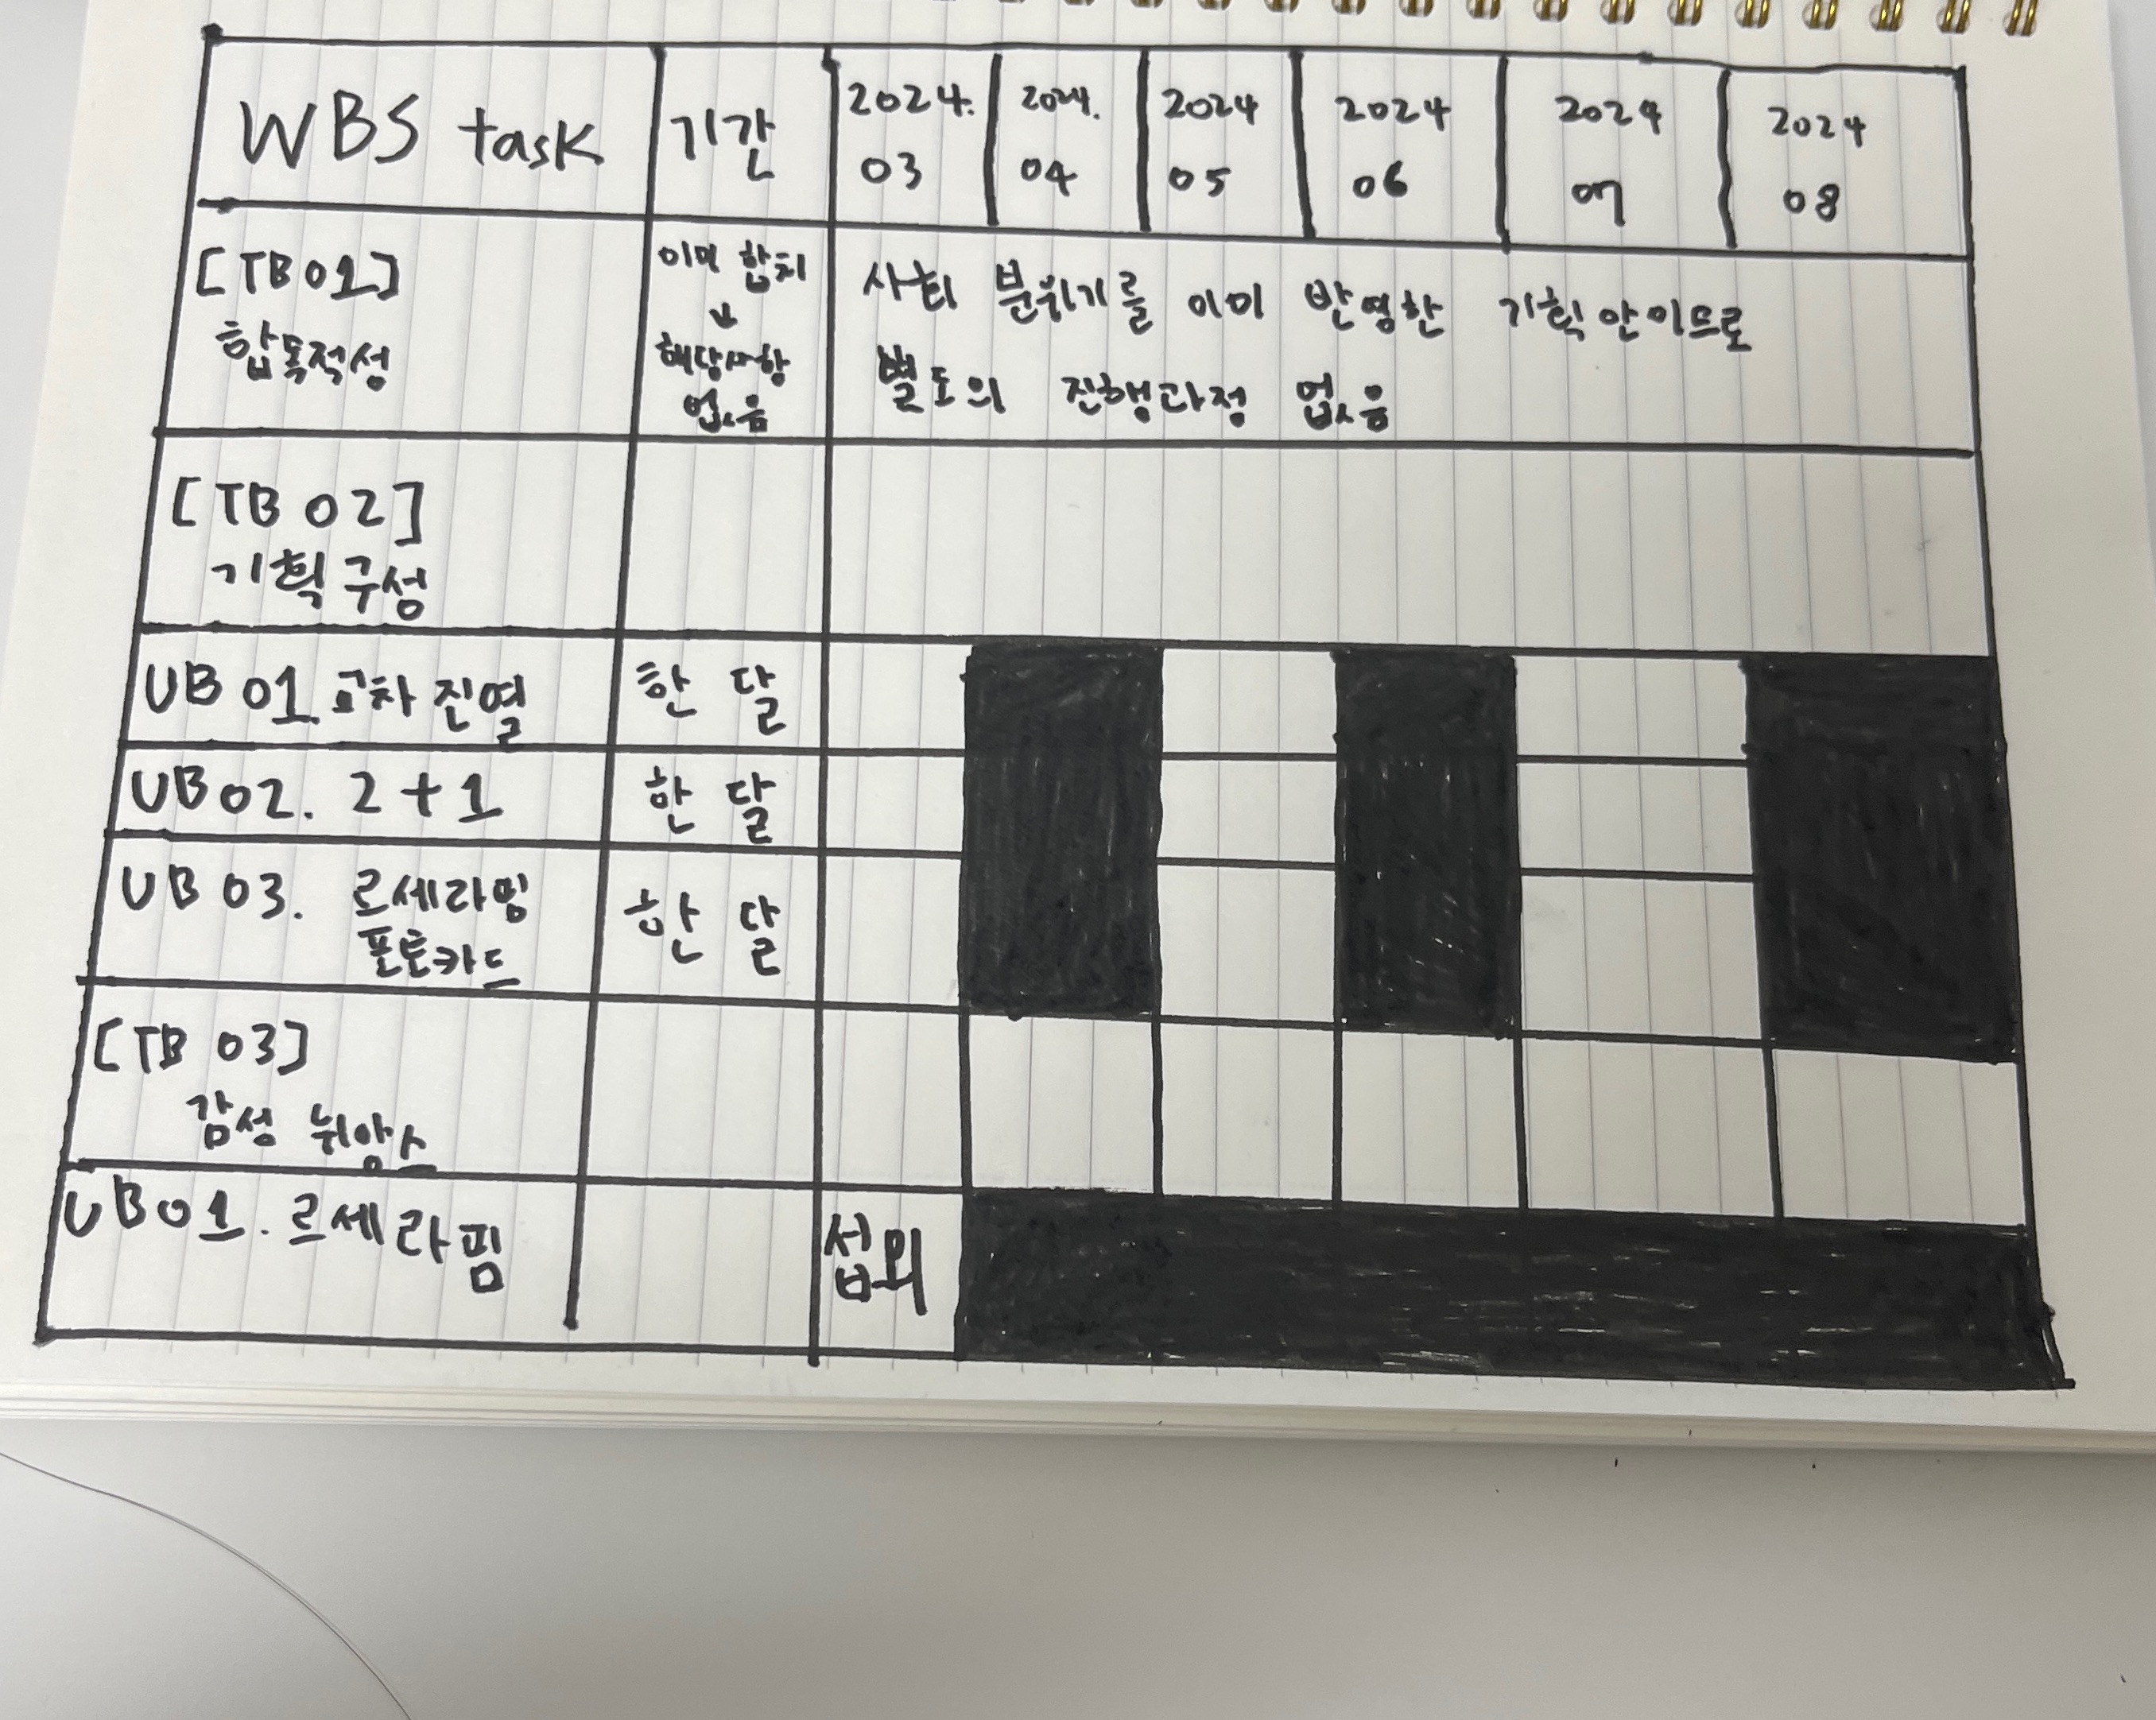 WBS task 기간 2024. 2024. 2024 2024 2024 2024
03 04 05 06 07 08
[TB 01]
합목적성
이미 합치
↓
해당사항
없음
사회 분위기를 이미 반영한 기획안이므로
별도의 진행과정 없음
[TB 02]
기획 구성
UB 01. 교차 진열 한 달
UB 02. 2+1 한 달
UB 03. 르세라핌 한 달
포토카드
[TB 03]
감성 뉘앙스
UB 01. 르세라핌 섭외